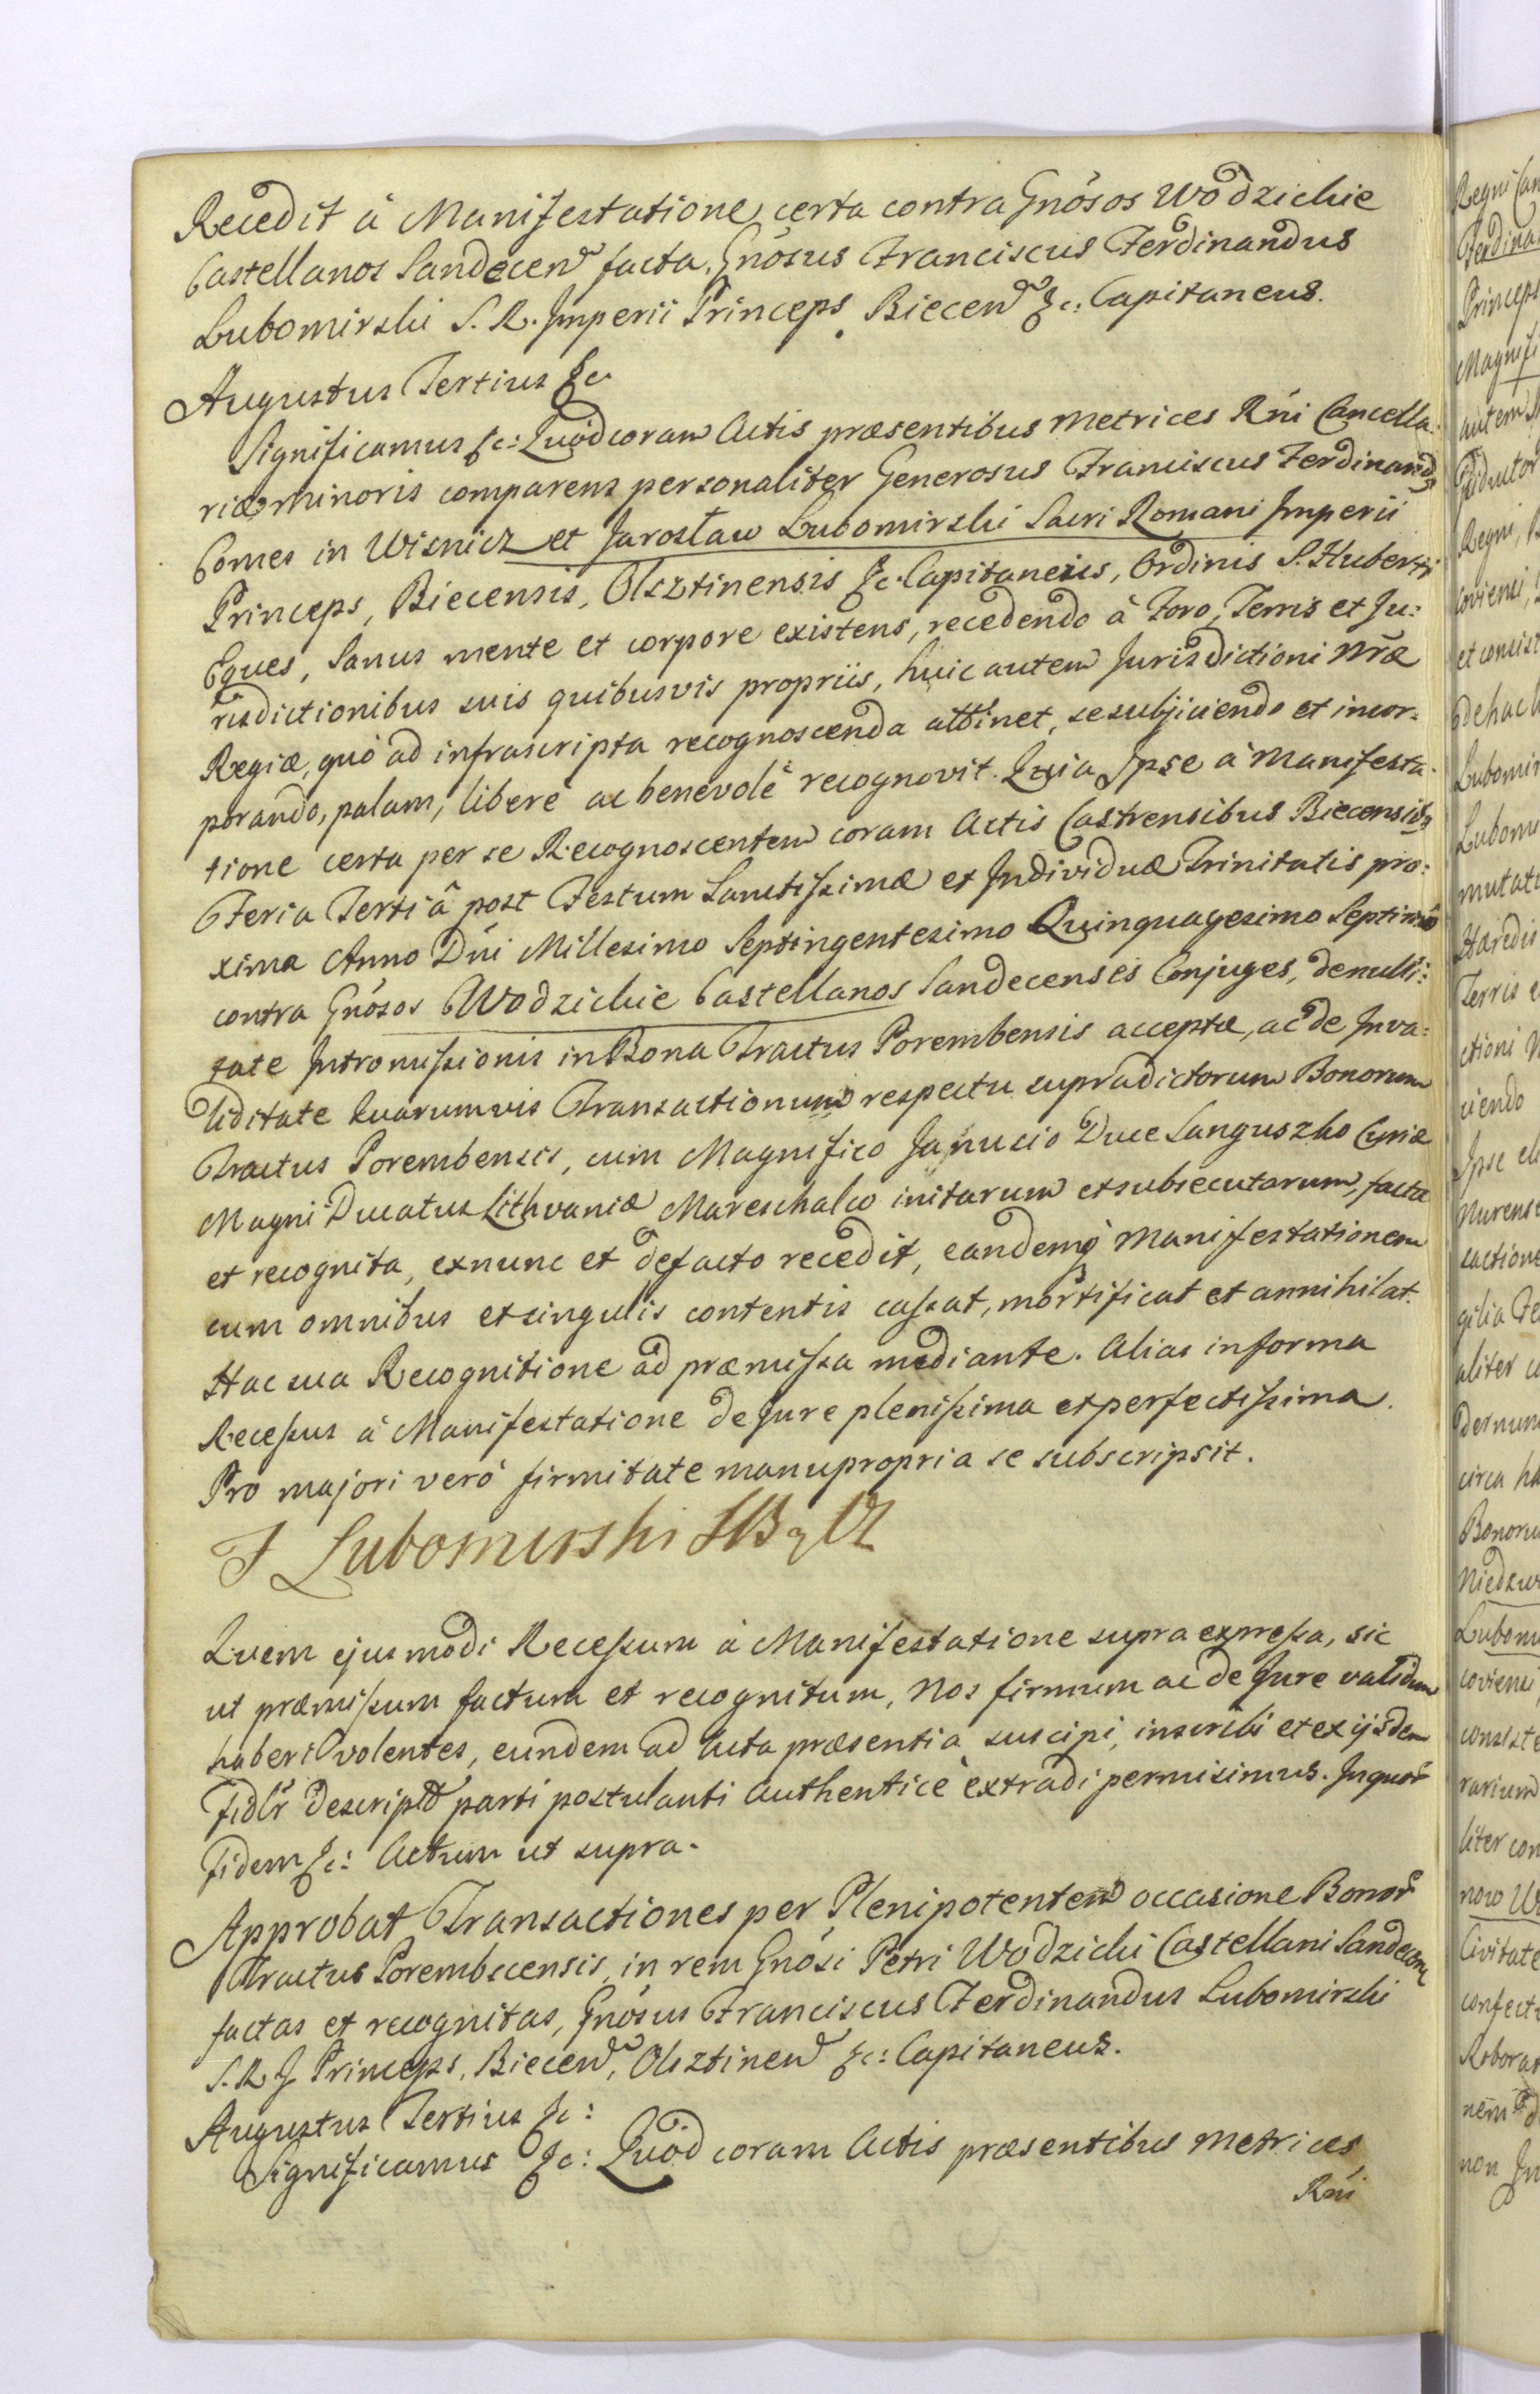 Recedit à Manifestatione certa contra Gnósos Wodzickie
Castellanos Sandecen facta, Gnósus Franciscus Ferdinandus
Lubomirski S. R. Imperii Princeps Biecen &c: Capitaneus.
Augustus Tertius &c
Significamus &c: Quód coram Actis præsentibus Metrices Rńi Cancella-
riæ minoris comparens personaliter Generosus Franciscus Ferdinandq
Comes in Wisnicz et Jarosław Lubomirski Sacri Romani Imperii
Princeps, Biecensis, Olsztinensis &c. Capitaneus, Ordinis S. Huberti
Eques, Sanus mente et corpore existens, recedendo à Foro, Terris et Ju:
risdictionibus suis quibusvis propriis, huic autem Jurisdictioni Nrã
Regiæ, quò ad infrascripta recognoscenda attinet, se subjiciendo et incor-
porando, palam, liberè ac benevolè recognovit. Quia Ipse à Manifesta-
tione certa per se Recognoscentem coram Actis Castrensibus Biecensibq
Feria Tertiâ post Festum Sanctissimæ et Individuæ Trinitatis pro:
xima Anno Dńi Millesimo Septingentesimo Quinquagesimo Septimo
contra Gnósos Wodzickie Castellanos Sandecenses Conjuges, de nulli:
tate Intromissionis in Bona Tractus Porembensis acceptæ, ac de Inva:
liditate Quarumvis Transactionum respectu supradictorum Bonorum
Tractus Porembensis, cum Magnifico Janucio Duce Sanguszko Curiæ
Magni Ducatus Lithvaniæ Mareschalco initarum et subsecutarum, facta
et recognita, exnunc et defacto recedit, eandemq Manifestationem
cum omnibus et singulis contentis cassat, mortificat et annihilat.
Hac sua Recognitione ad præmissa mediante. Alias in forma
Recessus à Manifestatione de Jure plenissima et perfectissima.
Pro majori veró firmitate manu propria se subscripsit.
F Lubomirski
Quem ejusmodi Recessum à Manifestatione supra expressa, sic
ut præmissum factum et recognitum, Nos firmum ac de Jure validum
haberi volentes, eundem ad Acta præsentia suscipi, inscribi et ex ijsdem
fidlr descript parti postulanti Authenticè extradi permisimus. In quor
Fidem &c: Actum ut supra.
Approbat Transactiones per Plenipotentem occasione Bonor
Tractus Porembecensis, in rem Gnósi Petri Wodzicki Castellani Sandecen
factas et recognitas, Gnósus Franciscus Ferdinandus Lubomirski
S. R. J Princeps, Biecen, Olsztinen &c: Capitaneus.
Augustus Tertius &c:
Significamus &c: Quód coram Actis præsentibus Metrices
Rńi